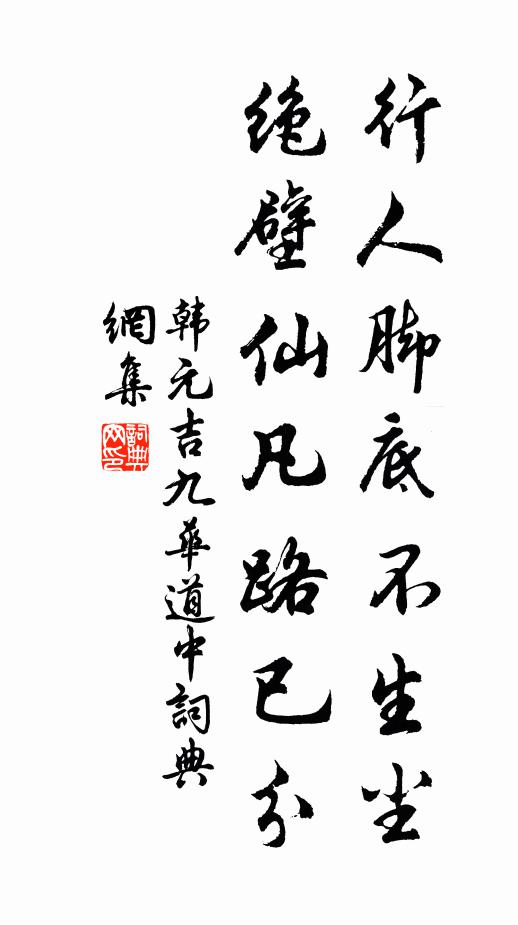 行人脚底不生尘
绝壁仙凡路已分
韩元吉九华道中詞典
網集
詞典网印